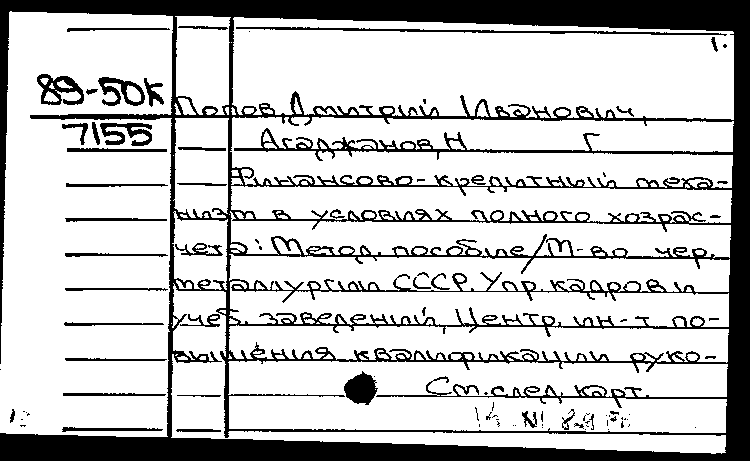 1.
89-50к
7155
Попов, Дмитрий Иванович,
Агаджанов, Н Г
Финансово-кредитный меха-
низм в условиях полного хозрас-
чета: Метод. пособие/М-во чер.
металлургии СССР. Упр. кадров и
учеб. заведений, Центр. ин-т по-
вышения квалификации руко-
См. след. карт.